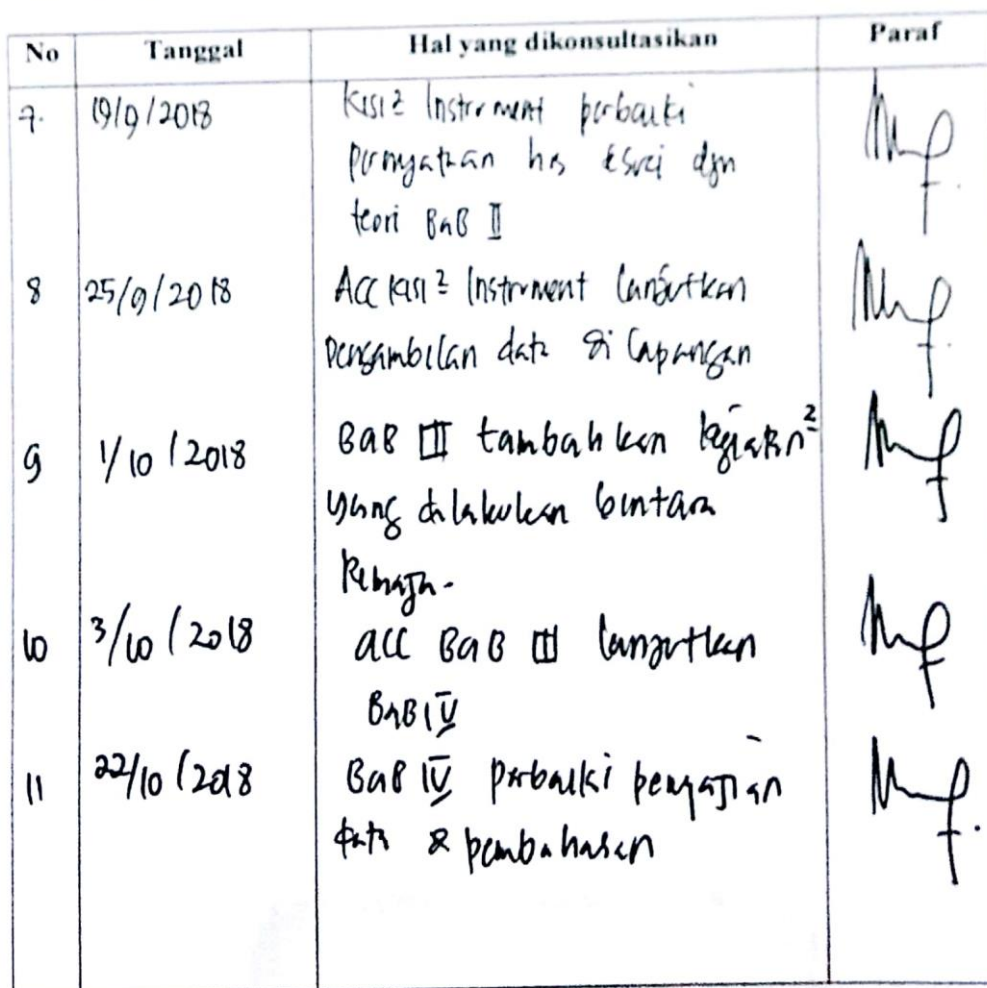 No Tanggal Hal yang dikonsultasikan Paraf
7. 19/9/2018 Kisi² Instrument perbaiki
pernyataan hrs sesuai dgn
teori BAB II
8 25/9/2018 Acc kisi² Instrument lanjutkan
pengambilan data di lapangan
9 1/10/2018 BAB III tambahkan kegiatan²
yang dilakukan bintara
Remaja-
10 3/10/2018 acc BAB III lanjutkan
BAB IV
11 22/10/2018 BAB IV perbaiki penyajian
data & pembahasan